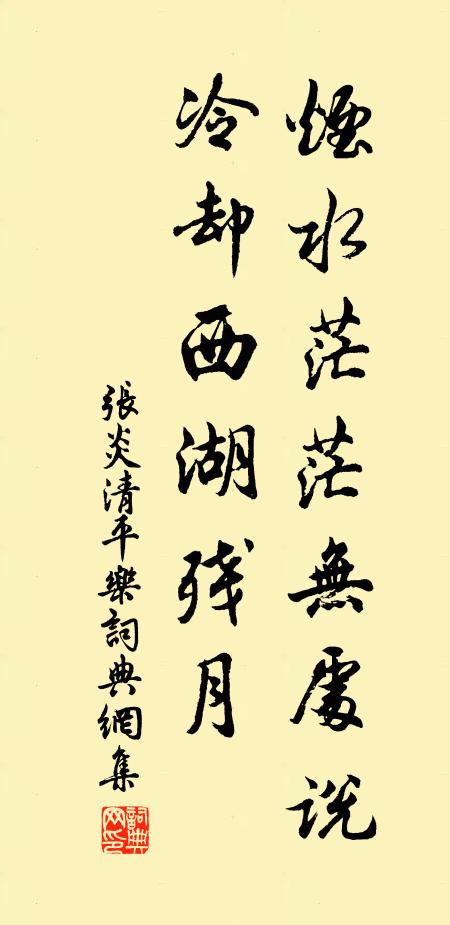 煙水茫茫無處說
冷却西湖殘月
張炎清平樂詞典網集
詞典網印